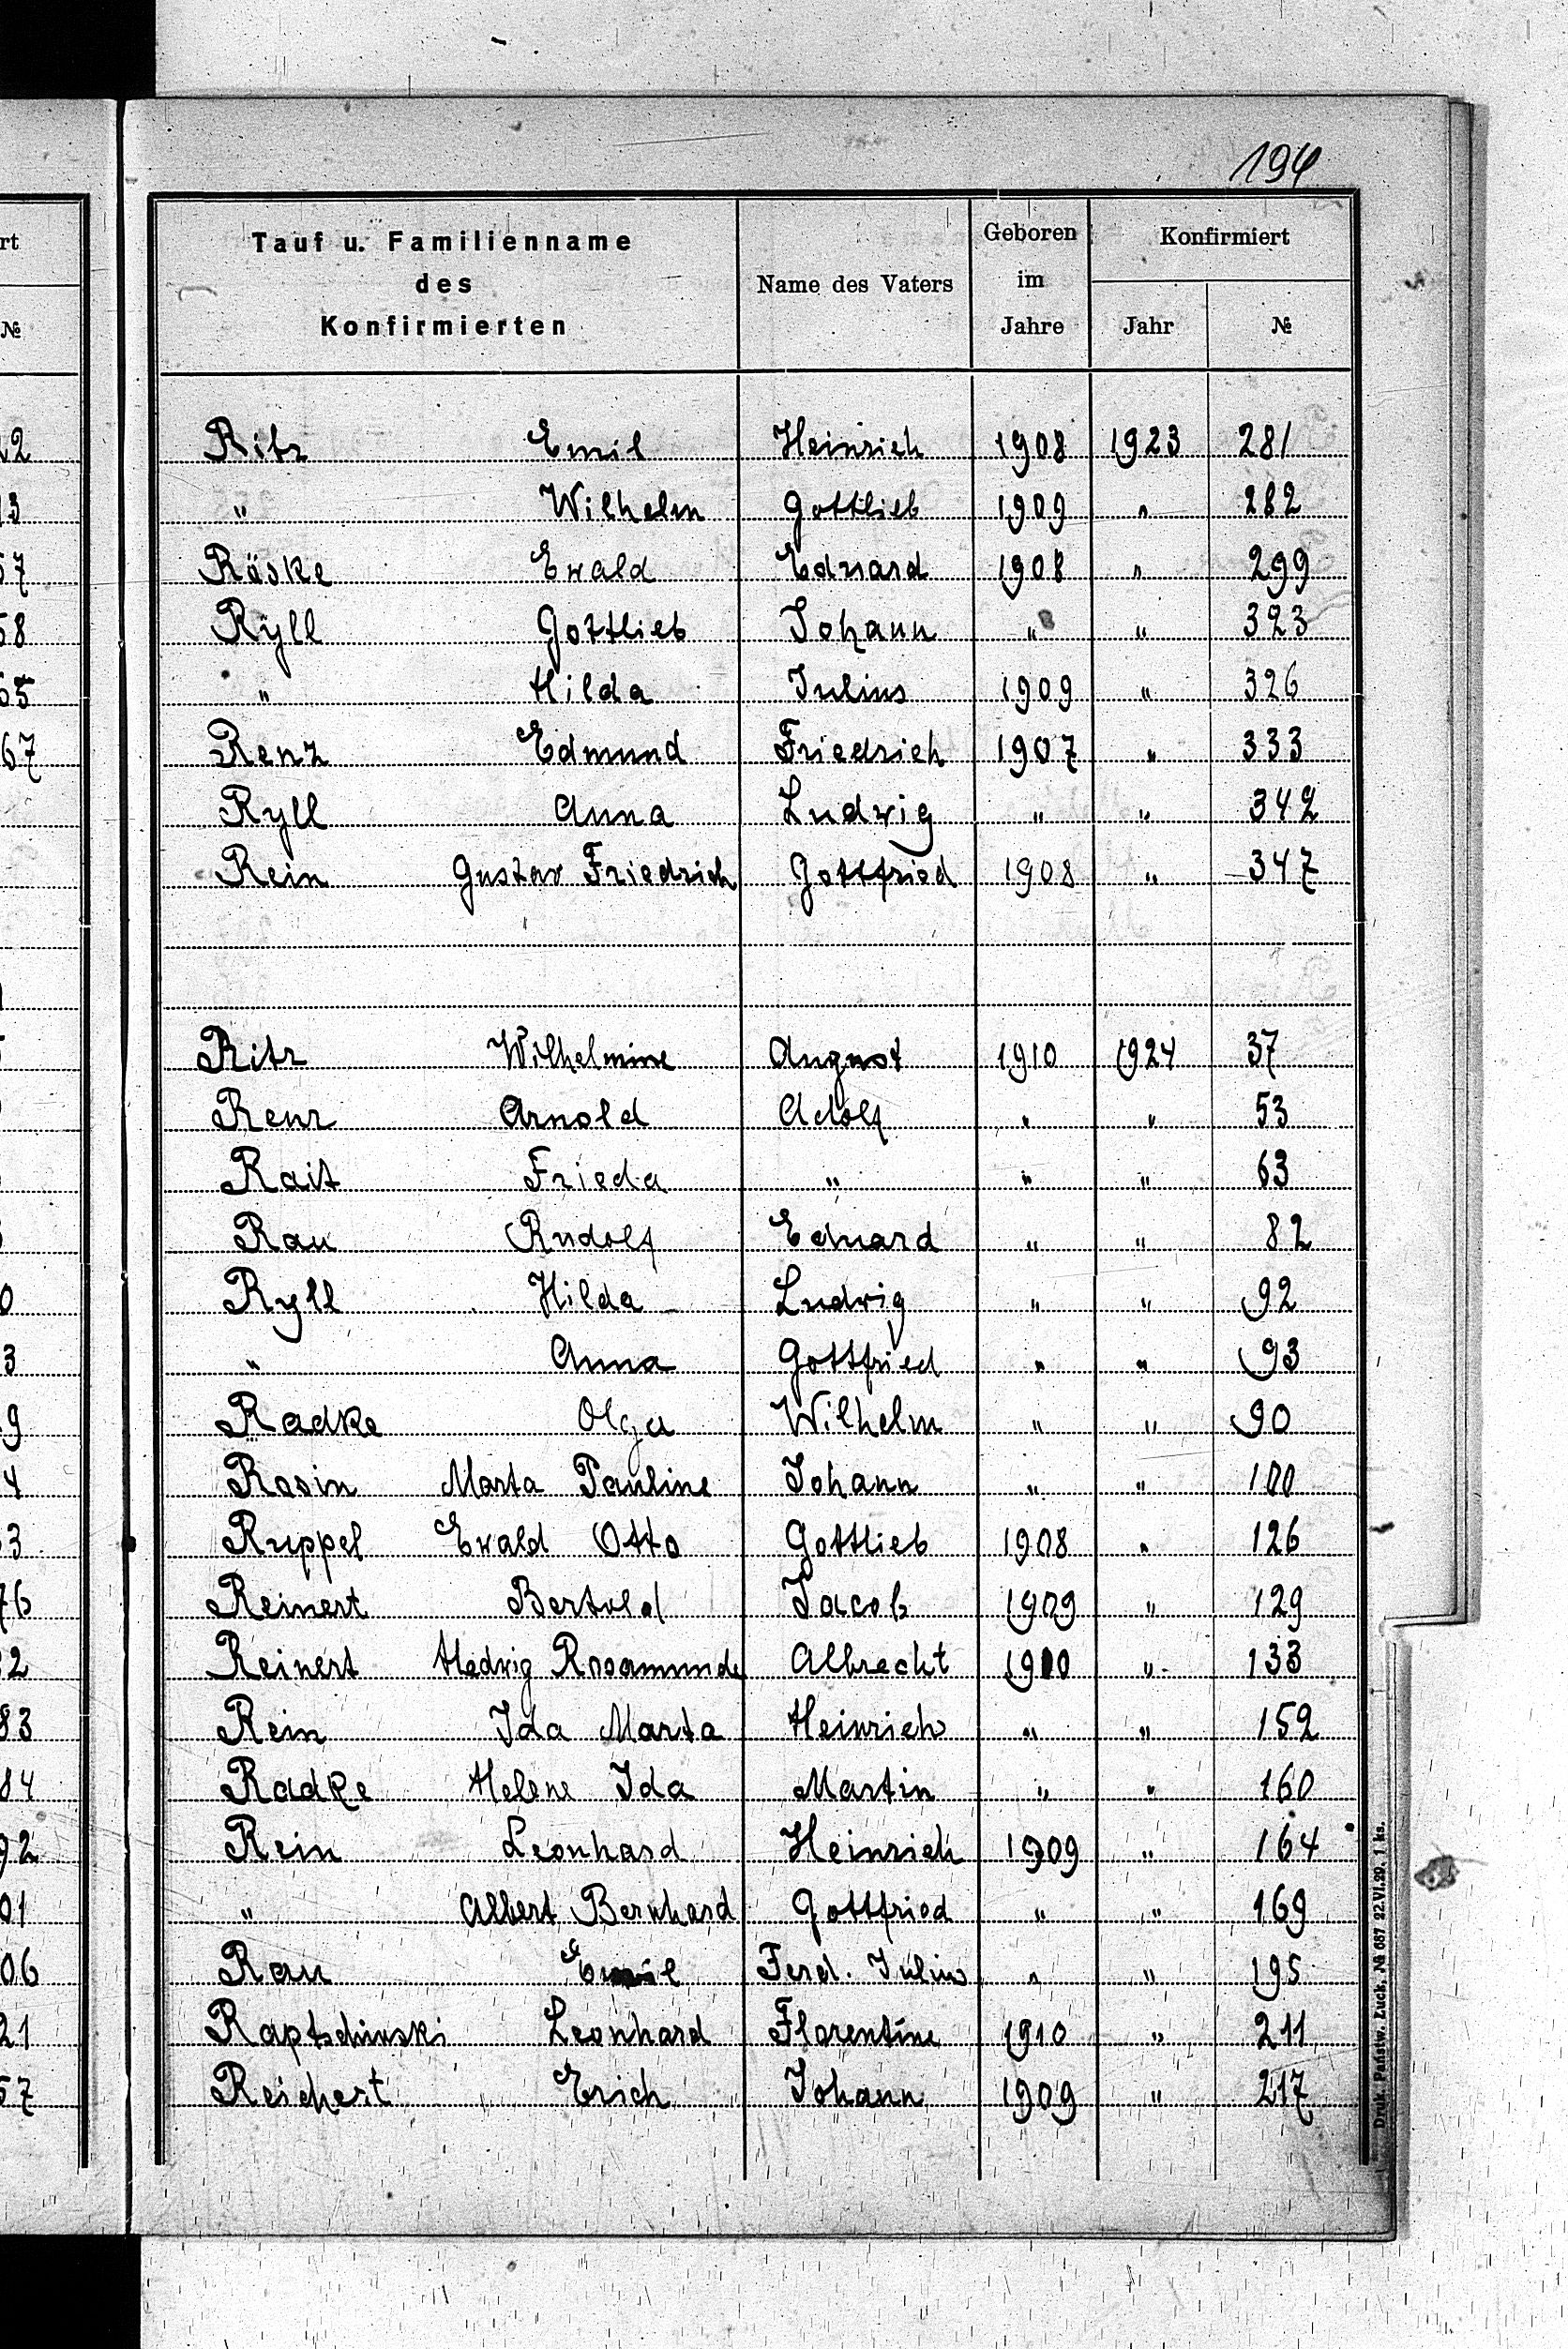 194
Tauf u. Familienname des Konfirmierten Name des Vaters Geboren im Jahre Konfirmiert Jahr №
Ritz Emil Heinrich 1908 1923 281
" Wilhelm Gottlieb 1909 " 282
Röske Ewald Eduard 1908 " 299
Ryll Gottlieb Johann " " 323
" Hilda Julius 1909 " 326
Renz Edmund Friedrich 1907 " 333
Ryll Anna Ludwig " " 342
Rein Gustav Friedrich Gottfried 1908 " 347
Ritz Wilhelmine August 1910 1924 37
Renz Arnold Adolf " " 53
Rait Frieda " " " 63
Rau Rudolf Eduard " " 82
Ryll Hilda Ludwig " " 92
" Anna Gottfried " " 93
Radke Olga Wilhelm " " 90
Rosin Marta Pauline Johann " " 100
Ruppel Ewald Otto Gottlieb 1908 " 126
Reinert Bertold Jacob 1909 " 129
Reinert Hedwig Rosamunde Albrecht 1910 " 133
Rein Ida Marta Heinrich " " 152
Radke Helene Ida Martin " " 160
Rein Leonhard Heinrich 1909 " 164
" Albert Bernhard Gottfried " " 169
Rau Emil Ferd. Julius " " 195
Raptschinski Leonhard Florentine 1910 " 211
Reichert Erich Johann 1909 " 217
Druk. Państw. Łuck. № 687 22.VI.29. 1 ks.